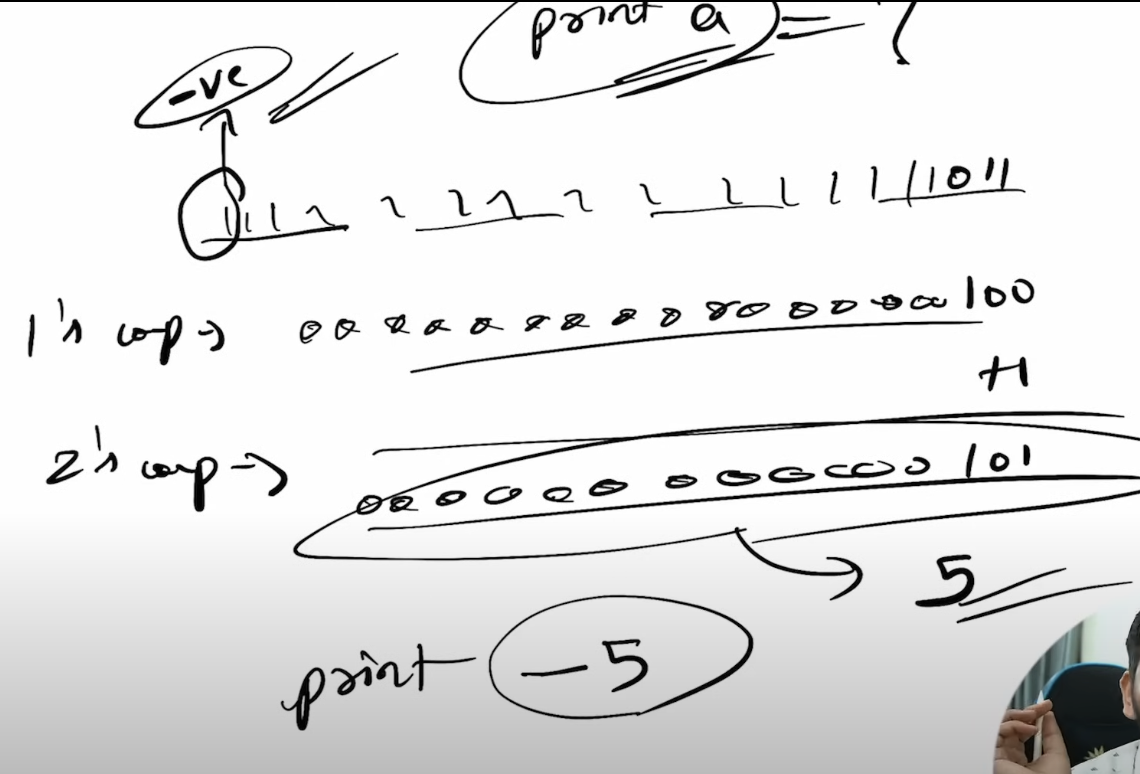 print a = ?
-ve
1111 1 111 1 1 11 1 1 11011
1's comp → 00000000000000000100
+1
2's comp → 00000000000000101
5
print -5